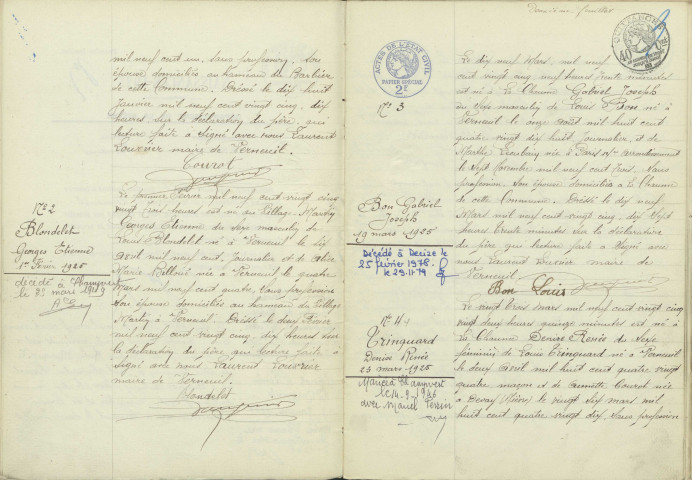 mil neuf cent un, sans profession, son
épouse domiciliés au hameau du Barbier
de cette Commune. Dressé le dix huit
Janvier mil neuf cent vingt cinq, dix
heures sur la déclaration du père, qui
lecture faite a signé avec nous Laurent
Louvrier maire de Verneuil.
Courot
N° 2
Blondelet
Georges Etienne
1er Février 1925
décédé à Champvert
le 31 mars 1919
Le premier Février mil neuf cent vingt cinq
vingt trois heures est né au village Martry
Georges Etienne du sexe masculin de
Louis Blondelet né à Verneuil le six
avril mil neuf cent, Journalier et de
Marie née à Verneuil le quatre
Mars mil neuf cent quatre, sans profession
son épouse domiciliés au hameau du village
Martry à Verneuil. Dressé le deux Février
mil neuf cent vingt cinq, dix heures sur
la déclaration du père, que lecture faite, a
signé avec nous Laurent Louvrier
maire de Verneuil.
Blondelet
ACTES DE L'ETAT CIVIL
PAPIER SPÉCIAL
2F
N° 3
Bon Gabriel
Joseph
19 mars 1925
Décédé à Decize le
25 février 1978.
le 29.11.79
Le dix neuf Mars, mil neuf
cent vingt cinq, neuf heures trente minutes
est né à La Chaume Gabriel Joseph
du sexe masculin de Louis Bon né à
Verneuil le onze août mil huit cent
quatre vingt dix huit Journalier, et de
Marthe née à Paris arrondissement
le sept mil neuf cent trois, Sans
profession son épouse domiciliés à La Chaume
de cette Commune. Dressé le dix neuf
Mars mil neuf cent vingt cinq, dix sept
heures trente minutes sur la déclaration
du père qui lecture faite a signé avec
nous Laurent Louvrier maire de
Verneuil.
Bon Louis
N° 4
Tringuard
Denise Renée
23 mars 1925
Mariée à Champvert
le 14-9-1946
avec Marcel Perrin
Le vingt trois mars mil neuf cent vingt cinq
vingt deux heures quinze minutes est né à
La Chaume Denise Renée du sexe
féminin de Louis Tringuard né à Verneuil
le deux avril mil huit cent quatre vingt
quatre, maçon et de Annette Courot née
à Devay (Nièvre) le vingt six mars mil
huit cent quatre vingt dix, sans profession